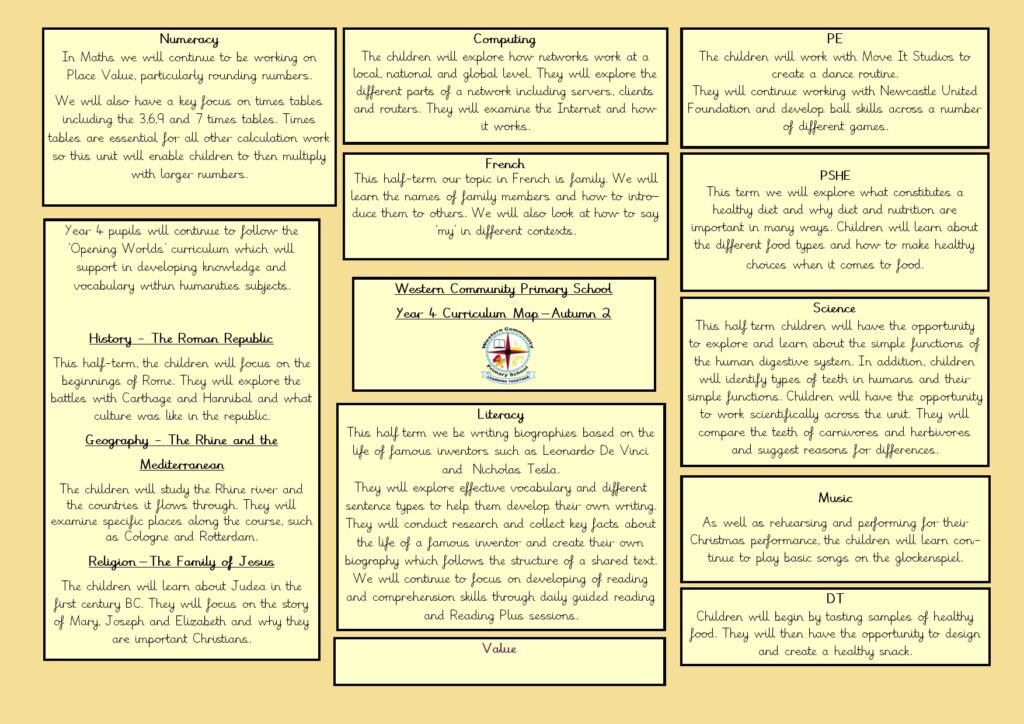 Numeracy
In Maths we will continue to be working on
Place Value, particularly rounding numbers..
We will also have a key focus on times tables
including the 3,6,9 and 7 times tables. Times
tables are essential for all other calculation work
so this unit will enable children to then multiply
with larger numbers..
Year 4 pupils will continue to follow the
'Opening Worlds' curriculum which will
support in developing knowledge and
vocabulary within humanities subjects..
History - The Roman Republic
This half-term, the children will focus on the
beginnings of Rome. They will explore the
battles with Carthage and Hannibal and what
culture was like in the republic.
Geography - The Rhine and the
Mediterranean
The children will study the Rhine river and
the countries it flows through. They will
examine specific places along the course, such
as Cologne and Rotterdam.
Religion – The Family of Jesus
The children will learn about Judea in the
first century BC. They will focus on the story
of Mary, Joseph and Elizabeth and why they
are important Christians..
Computing
The children will explore how networks work at a
local, national and global level. They will explore the
different parts of a network including servers, clients
and routers. They will examine the Internet and how
it works..
French
This half-term our topic in French is family. We will
learn the names of family members and how to intro-
duce them to others.. We will also look at how to say
'my' in different contexts..
Western Community Primary School
Year 4 Curriculum Map – Autumn 2
Western Community
Primary School
LEARNING TOGETHER
Literacy
This half term we be writing biographies based on the
life of famous inventors such as Leonardo De Vinci
and Nicholas Tesla.
They will explore effective vocabulary and different
sentence types to help them develop their own writing.
They will conduct research and collect key facts about
the life of a famous inventor and create their own
biography which follows the structure of a shared text.
We will continue to focus on developing of reading
and comprehension skills through daily guided reading
and Reading Plus sessions..
Value
PE
The children will work with Move It Studios to
create a dance routine.
They will continue working with Newcastle United
Foundation and develop ball skills across a number
of different games..
PSHE
This term we will explore what constitutes a
healthy diet and why diet and nutrition are
important in many ways. Children will learn about
the different food types and how to make healthy
choices when it comes to food.
Science
This half term children will have the opportunity
to explore and learn about the simple functions of
the human digestive system. In addition, children
will identify types of teeth in humans and their
simple functions. Children will have the opportunity
to work scientifically across the unit. They will
compare the teeth of carnivores and herbivores
and suggest reasons for differences..
Music
As well as rehearsing and performing for their
Christmas performance, the children will learn con-
tinue to play basic songs on the glockenspiel.
DT
Children will begin by tasting samples of healthy
food. They will then have the opportunity to design
and create a healthy snack.